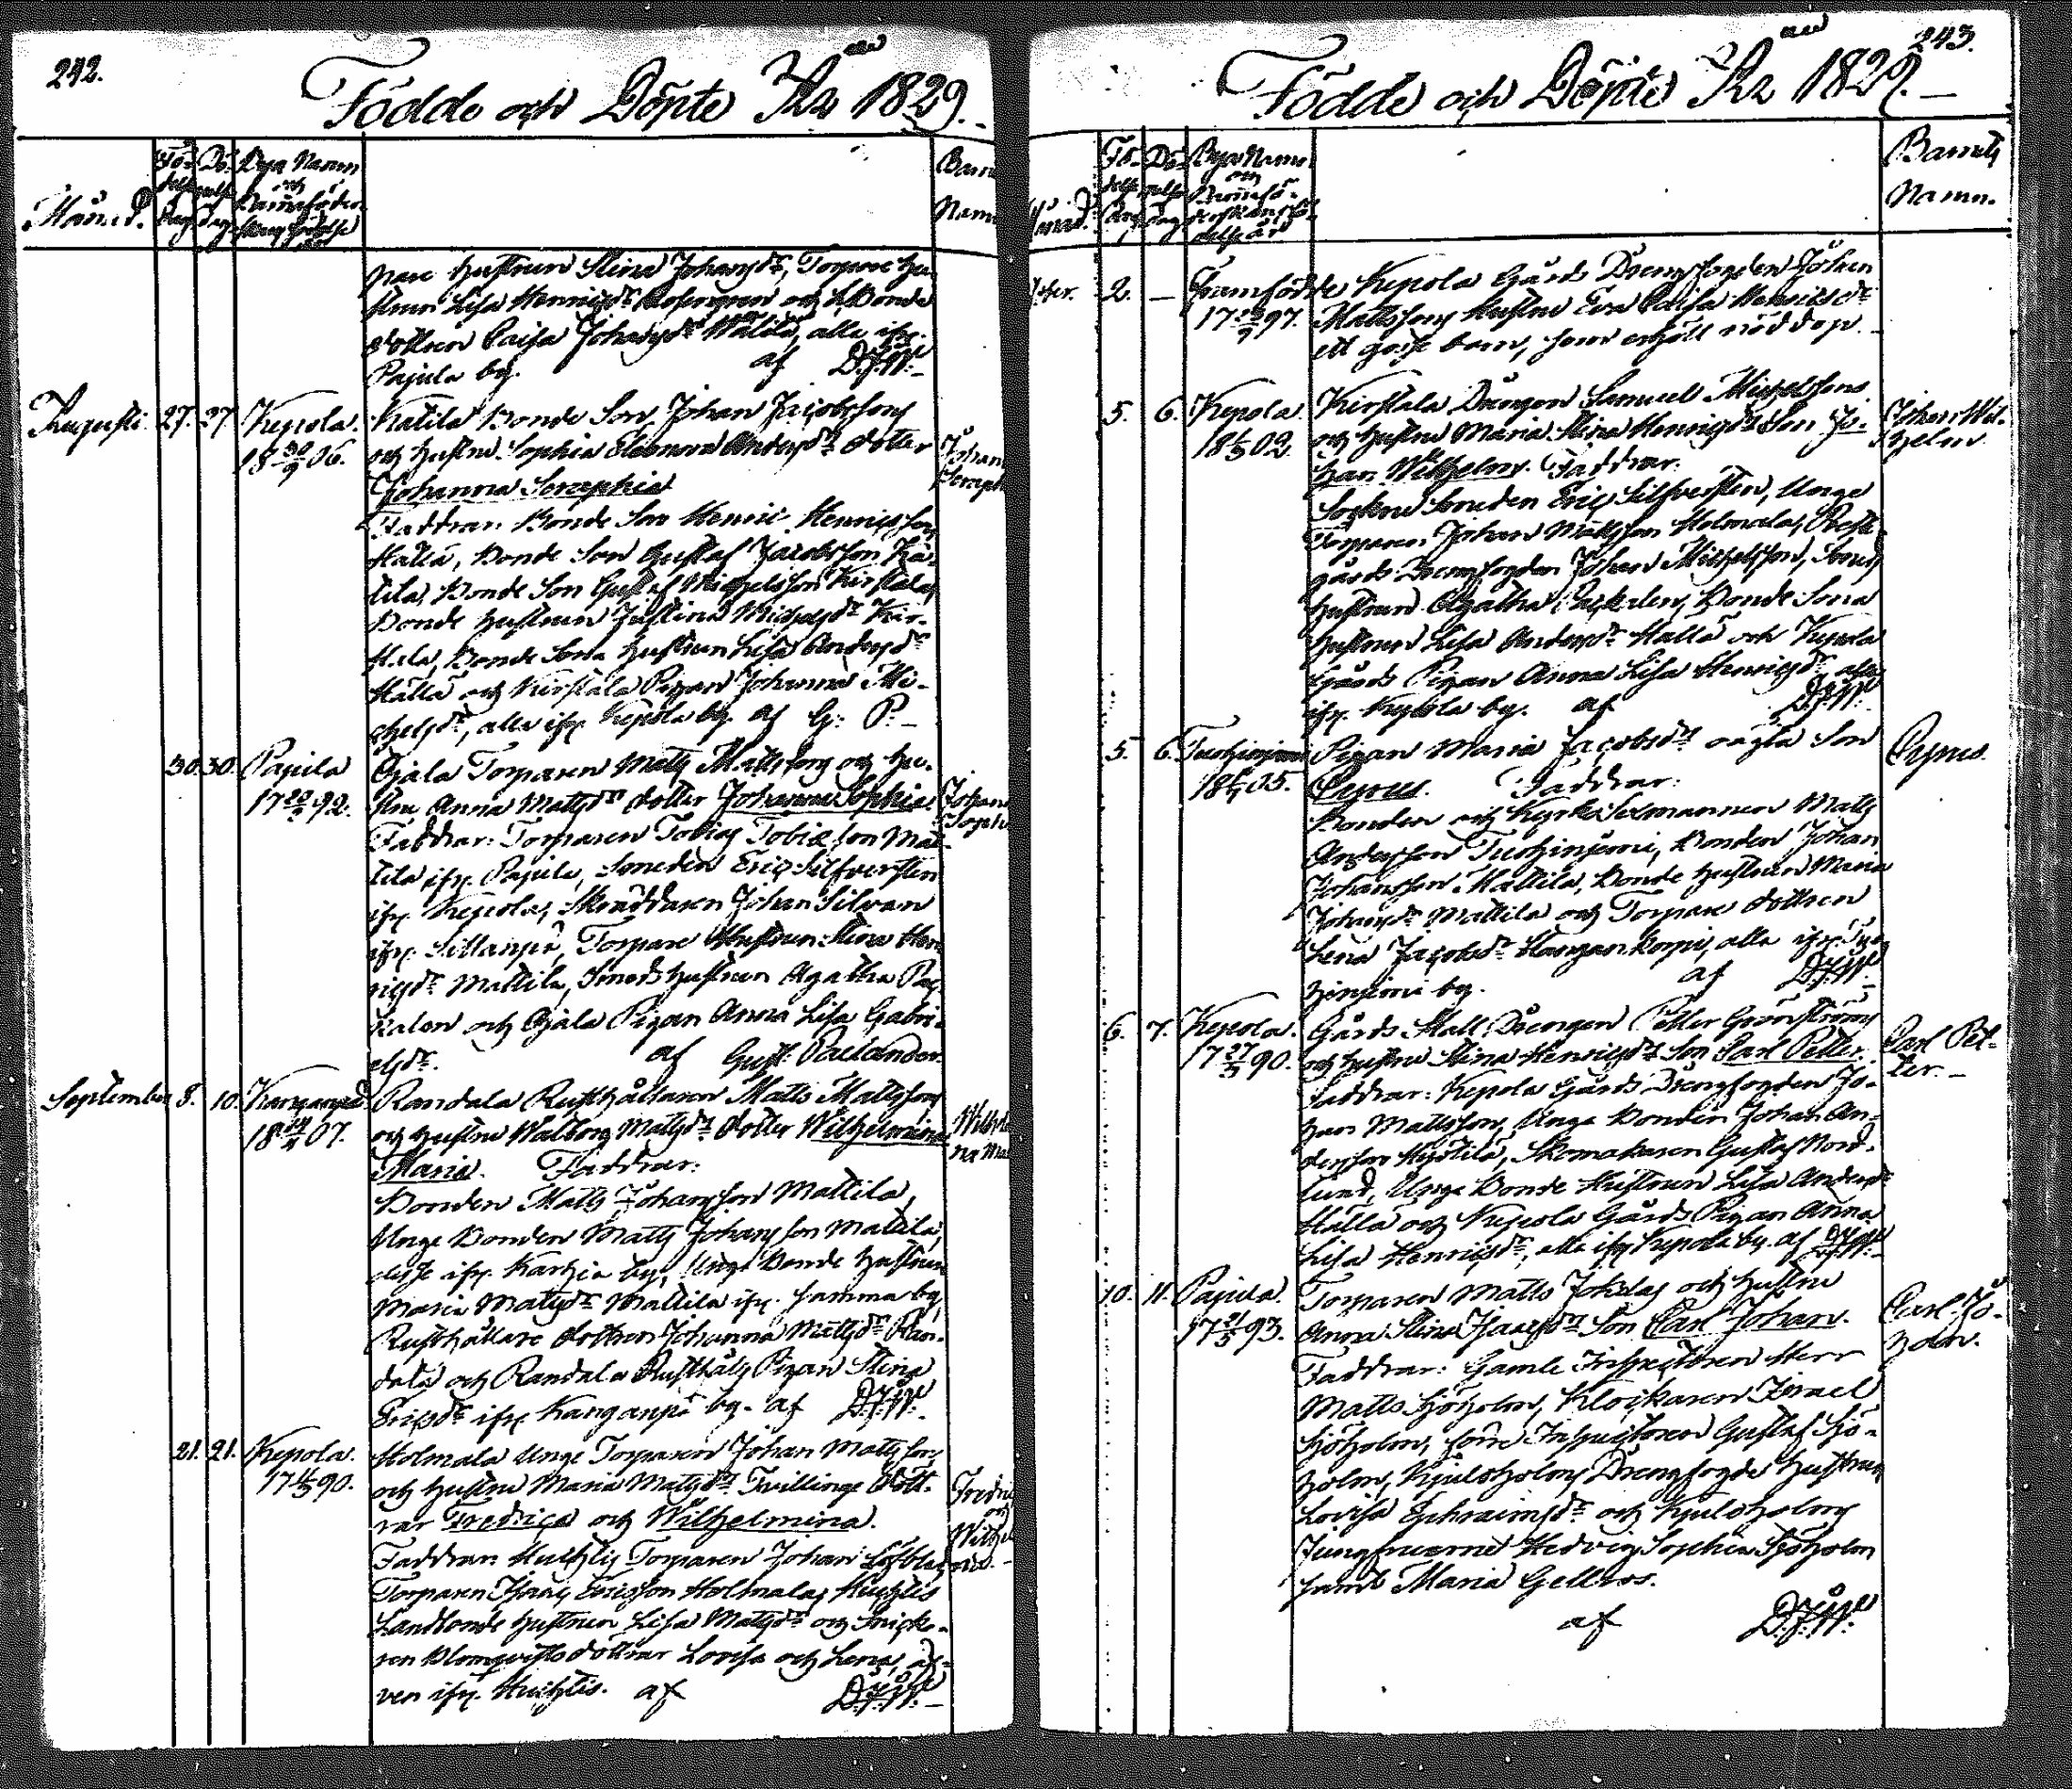 242.
Födde och Döpte År 1829.
Månad.
Fö-
delse
Dag
Dö-
pelse
Dag
Byars Namn
och
nare hustrun Stina Johansdr, Torpare hu-
strun Lisa Henricsdr Rosengren och Bonde
dottren Caisa Johansdr Wälilä, alla ifr.
Pajula by. af D.J.W.
Augusti 27. 27. Kepola.
18 06.
Katila Bonde Son Johan Jacobssons
och hustru Sophia Eleonora Andersdr dotter
Johanna Seraphia
Faddrar: Bonde Son Henric Henricsson
Hälla, Bonde Son Gustaf Jacobsson Ka-
tila, Bonde Son Gustaf Michelsson Kirstala,
Bonde hustrun Justina Michelsdr Kir-
stala, Bonde Sona hustrun Lisa Andersdr
Hälla och Kirstala Pigan Johanna Mi-
chelsdr, alla ifr. Kepola by. af G: P.
30. 30. Pajula
17 92.
Ojala Torparen Matts Mattssons och hu-
stru Anna Mattsdr dotter Johanna Sophia.
Faddrar: Torparen Tobias Tobiæson Mat-
tila ifr. Pajula, Smeden Eric Silfversten
ifr. Kepola, Skräddaren Johan Silvan
ifr. Sillanpä, Torpare Hustrun Stina Hen-
ricsdr Mattila, Smeds hustrun Agatha Pac-
kalen och Ojala Pigan Anna Lisa Gabri-
elsdr. af Gust: Pacander.
September 8. 10. Kanganpä.
18 07.
Randala Rusthållaren Matts Mattssons
och hustru Walborg Mattsdr dotter Wilhelmina
Maria. Faddrar:
Bonden Matts Johansson Mattila,
Unge Bonden Matts Johansson Mattila,
desse ifr. Karhia by, Unge Bonde hustrun
Maria Mattsdr Mattila ifr. samma by,
Rusthållare dottren Johanna Mattsdr Ran-
dala och Randala Rusthålls Pigan Stina
Ericsdr ifr. Kanganpä by. af D.J.W.
21. 21. Kepola.
17 90.
Holmala Unge Torparen Johan Mattssons
och hustru Maria Mattsdr Tvillinge Dött-
rar Fredrica och Wilhelmina.
Faddrar: Huchtis Torparen Johan Löfblad,
Torparen Isaac Ericsson Holmala, Huchtis
Landbonde hustrun Lisa Mattsdr och Snicka-
ren Blomqvists döttrar Lovisa och Lena, äf-
ven ifr. Huchtis. af D.J.W.
243.
Födde och Döpte År 1829.
Fö-
delse
Dag
Dö-
pelse
Dag
Byars Namn
och
Barnets
Namn.
2. — Framfödde Kepola Gårds Drengfogden Johan
17 97. Mattssons Hustru Eva Caisa Henricsdr
ett gosse barn, som erhöll nöddop.
5. 6. Kepola.
18 02.
Kirstala Drängen Samuel Michelssons
och hustru Maria Stina Henricsdr Son Jo-
han Wilhelm. Faddrar:
Johan Wil-
helm.
Sockne Smeden Eric Silfversten, Unge
Torparen Johan Mattsson Holmala,
gårds Drengfogden Johan Michelsson, Smeds
hustrun Agatha Packalen, Bonde Sona
hustrun Lisa Andersdr Hälla och Kepola
Gårds Pigan Anna Lisa Henricsdr, alla
ifr. Kepola by. af D.J.W.
5. 6. Tuohiniemi
18 05.
Pigan Maria Jacobsdrs oägta Son
Cyrus. Faddrar:
Cyrus.
Bonden och Kyrko Sexmannen Matts
Andersson Tuohiniemi, Bonden Johan
Johansson Mattila, Bonde hustrun Maria
Johansdr Mattila och Torpare dottren
Lena Jacobsdr Hangankorpi, alla ifr. Tuo-
hiniemi by. af D.J.W.
6. 7. Kepola.
17 90.
Gårds Stall Drengen Petter Grönströms
och hustru Stina Henricsdr Son Carl Petter.
Carl Pet-
ter.
Faddrar: Kepola Gårds Drengfogden Jo-
han Mattsson, Unge Bonden Johan An-
dersson Hyötilä, Skomakaren Gustaf Nord-
lund, Unge Bonde Hustrun Lisa Andersdr
Hälla och Kepola Gårds Pigan Anna
Lisa Henricsdr, alla ifr Kepola by. af D.J.W.
10. 11. Pajula.
17 93.
Torparen Matts Jokelas och hustru
Anna Stina Isaacsdr Son Carl Johan.
Carl Jo-
han.
Faddrar: Gamle Inspectoren Herr
Matts Sjöholm, Klockaren Israel
Sjöholm, förre Inspectoren Gustaf Sjö-
holm, Kjuloholms Drengfogde hustrun
Lovisa Ephraimsdr och Kjuloholms
Jungfruerne Hedvig Sophia Sjöholm
samt Maria Gellros.
af D.J.W.